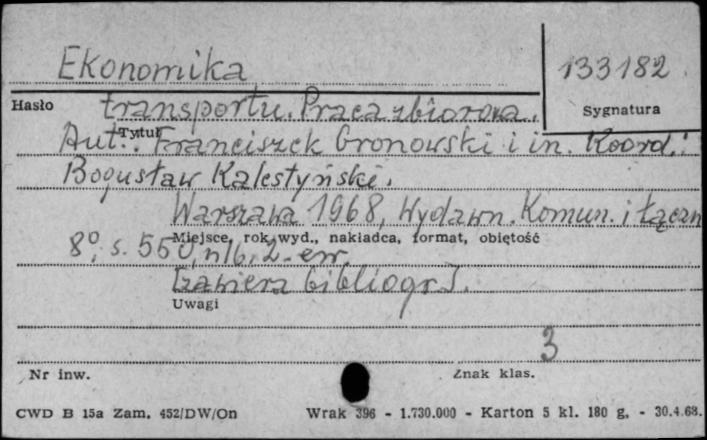 Ekonomika
133182
Hasło
transportu. Praca zbiorowa.
Sygnatura
Tytuł
Aut.: Franciszek Gronowski i in. Koord.:
Bogusław Kalestyński.
Warszawa 1968, Wydawn. Komun. i Łączn
Miejsce, rok wyd., nakładca, format, objętość
8°, s. 550, nlb. 2. err.
[zawiera bibliogr].
Uwagi
3
Nr inw.
Znak klas.
CWD B 15a Zam. 452/DW/On
Wrak 396 - 1.730.000 - Karton 5 kl. 180 g. - 30.4.68.